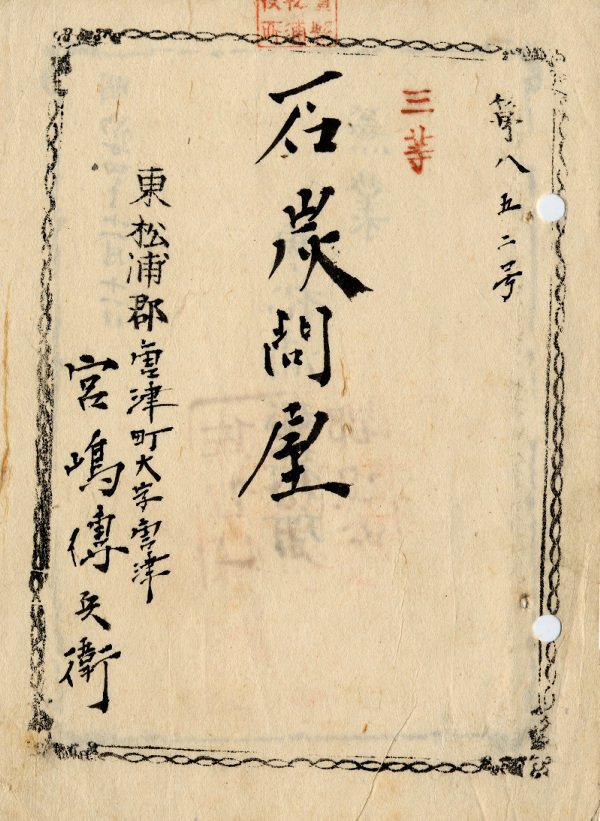 第八五二号
三等
石炭問屋
東松浦郡唐津町大字唐津
宮嶋傳兵衛